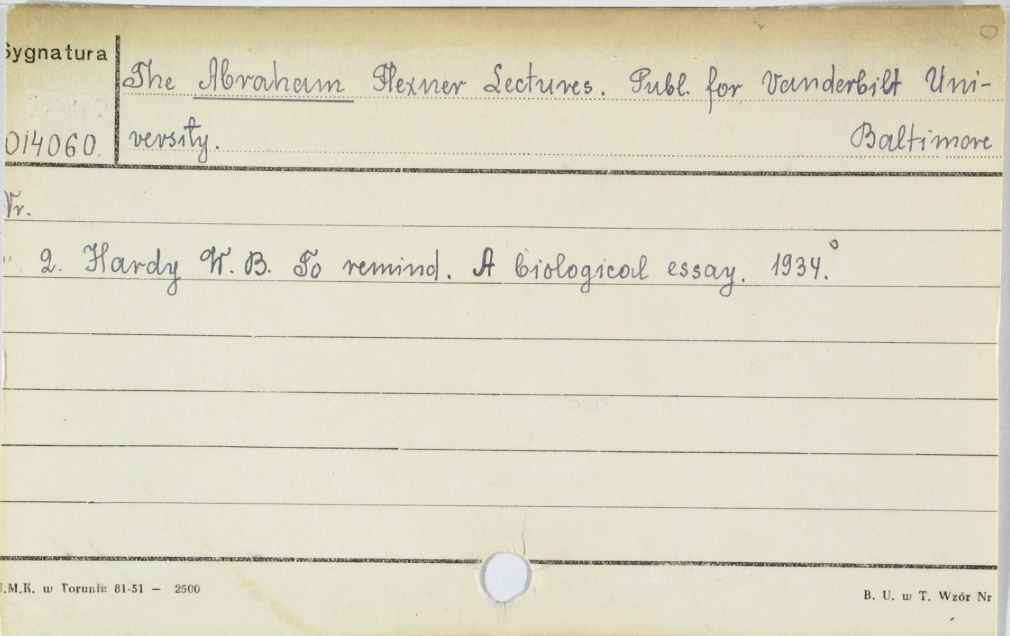 Sygnatura
The Abraham Flexner Lectures. Publ. for Vanderbilt Uni-
014060. versity. Baltimore
Nr.
" 2. Hardy W. B. To remind. A biological essay. 1934.°
.M.K. w Toruniu 81-51 — 2500
B. U. w T. Wzór Nr